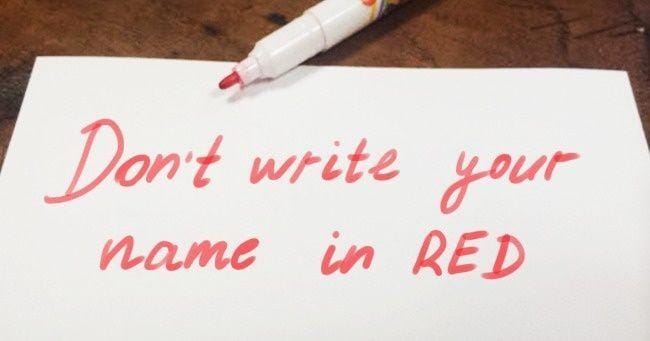 Don't write your
name in RED